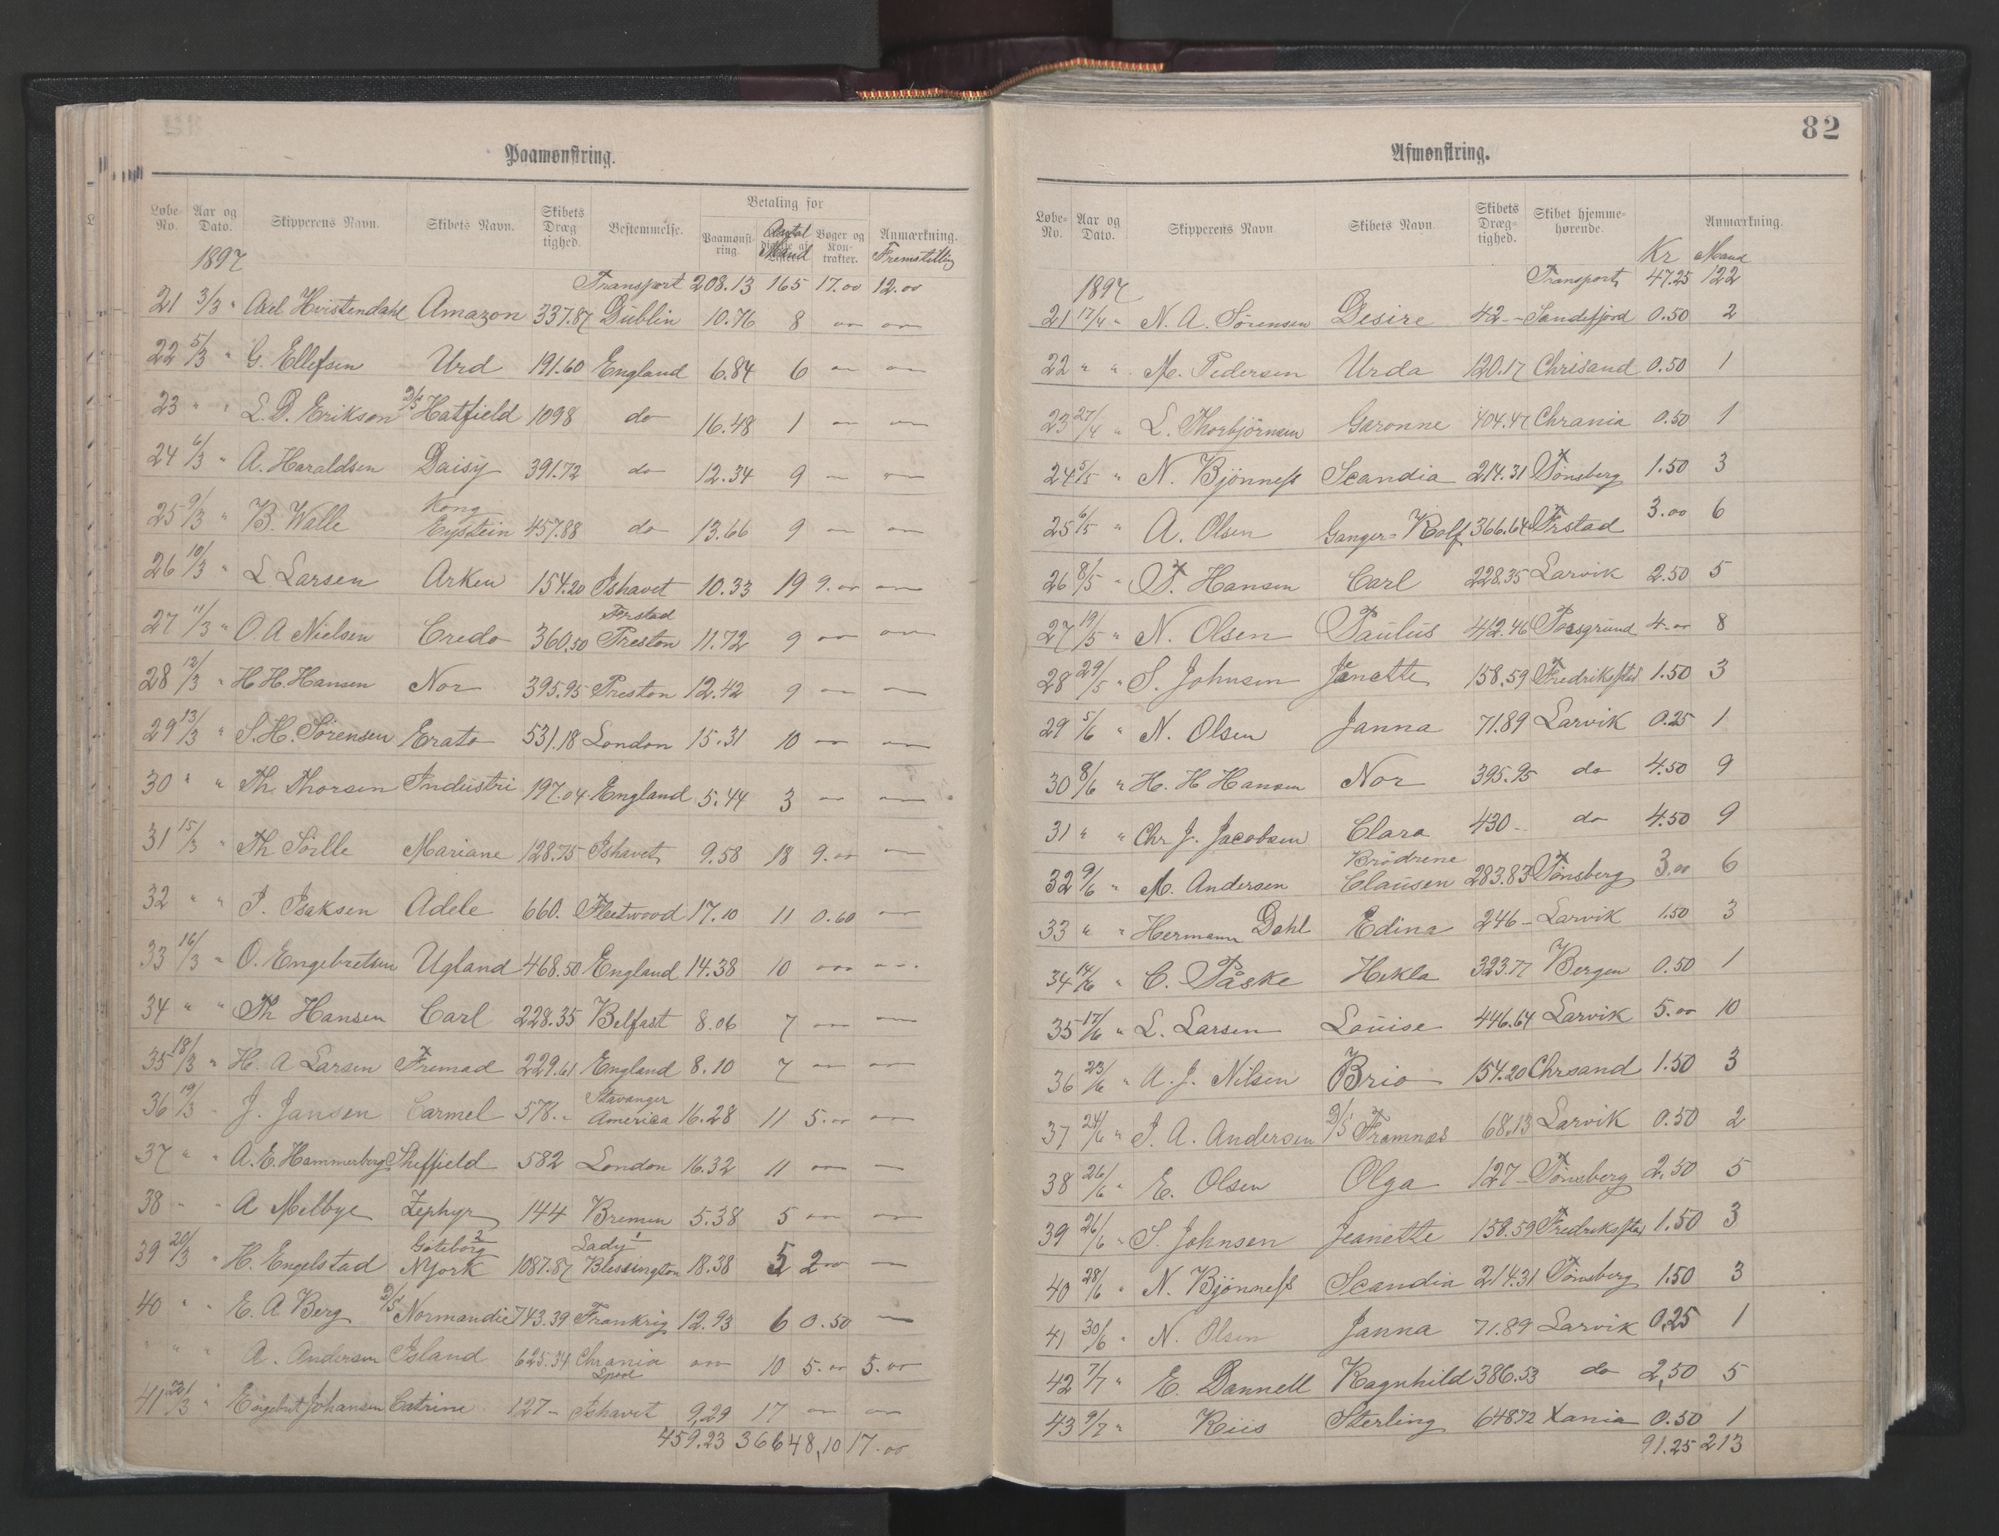 Paamønstring.
Løbe-No. Aar og Dato. Skipperens Navn. Skibets Navn. Skibets Dræg tighed. Bestemmelse. Betaling for Paamønst-ring. Antal Mand Bøger og Kon-trakter. Anmærkning. Fremstilling
1897
Transport 208.13 165 17.00 12.00
21 3/3 " Axel Hvistendahl Amazon 337.87 Dublin 10.76 8 — —
22 5/3 " G. Ellefsen Urd 191.60 England 6.84 6 — —
23 " " L. D. Erikson D/S Hatfield 1098 do 16.48 1 — —
24 6/3 " A. Haraldsen Daisy 391.72 do 12.34 9 — —
25 9/3 " B. Walle Kong Eystein 457.88 do 13.66 9 — —
26 10/3 " L Larsen Arken 154.20 Ishavet 10.33 19 9.00 —
27 11/3 " O. A Nielsen Credo 360.50 Frstad Preston 11.72 9 — —
28 12/3 " H H. Hansen Nor 395.95 Preston 12.42 9 — —
29 13/3 " S. H. Sørensen Erato 531.18 London 15.31 10 — —
30 " " Th. Thorsen Industri 197.04 England 5.44 3 — —
31 15/3 " Th Sörlle Mariane 128.75 Ishavet 9.58 18 9.00 —
32 " " I. Isaksen Adele 660. Fleetwood 17.10 11 0.60 —
33 16/3 " O. Engebretsen Ugland 468.50 England 14.38 10 — —
34 " " Th Hansen Carl 228.35 Belfast 8.06 7 — —
35 18/3 " H. A Larsen Fremad 229.61 England 8.10 7 — —
36 19/3 - J. Jansen Carmel 578.- Stavanger America 16.28 11 5.00 —
37 " " A. E. Hammerberg Sheffield 582 London 16.32 11 — —
38 " " A Melbye Zephyr 144 Bremen 5.38 5 — —
39 20/3 " H. Engelstad Göteborg 2 N York 1087.87 Lady 1 Blessington 18.38 5 2.00 —
40 " " E. A Berg D/S Normandie 743.39 Frankrig 12.93 6 0.50 —
" " " A. Andersen Island 625.34 Chrania Lpool — 10 5.00 5.00
41 22/3 " Engebret Johansen Catrine 127 — Ishavet 9,29 17 — —
459.23 366 48,10 17.00
82
Afmønstring.
Løbe-No. Aar og Dato. Skipperens Navn Skibets Navn Skibets Dræg-tighed. Skibet hjemme-hørende. Kr Anmærkning. Mand
1897 Transport 47.25 122
21 17/4 " N. A. Sørensen Desire 42 — Sandefjord 0.50 2
22 " " M. Pedersen Urda 120.17 Chrisand 0.50 1
23 27/4 " L. Thorbjörnsen Garonne 404.47 Chrania 0.50 1
24 5/5 " N. Bjönness Scandia 214.31 Tönsberg 1.50 3
25 6/5 " A. Olsen Ganger-Rolf 366.64 Frstad 3.00 6
26 8/5 " T. Hansen Carl 228.35 Larvik 2.50 5
27 19/5 " N. Olsen Paulus 412.46 Porsgrund 4.00 8
28 29/5 " S. Johnsen Jenette 158.59 Fredriksstad 1.50 3
29 5/6 " N. Olsen Janna 71.89 Larvik 0.25 1
30 8/6 " H. H Hansen Nor 395.95 do 4.50 9
31 " " Chr J. Jacobsen Clara 430 - do 4.50 9
32 9/6 " M. Andersen Brödrene Clausen 283.83 Tönsberg 3.00 6
33 " " Hermann Dahl Edina 246 - Larvik 1.50 3
34 14/6 " C. Påske Hekla 323.77 Bergen 0.50 1
35 17/6 " L. Larsen Louise 446.64 Larvik 5.00 10
36 23/6 " A. J. Nilsen Brio 154.20 Chrsand 1.50 3
37 24/6 " I. A. Andersen D/S Framnæs 68.13 Larvik 0.50 2
38 26/6 " E. Olsen Olga 127 - Tönsberg 2,50 5
39 26/6 " S. Johnsen Jeanette 158.59 Fredriksstad 1.50 3
40 28/6 " N. Bjönness Scandia 214.31 Tönsberg 1.50 3
41 30/6 " N. Olsen Janna 71.89 Larvik 0,25 1
42 7/7 " E. Dannell Ragnhild 386.53 do 2,50 5
43 9/7 " Riis Sterling 648.72 Xania 0.50 1
91.25 213